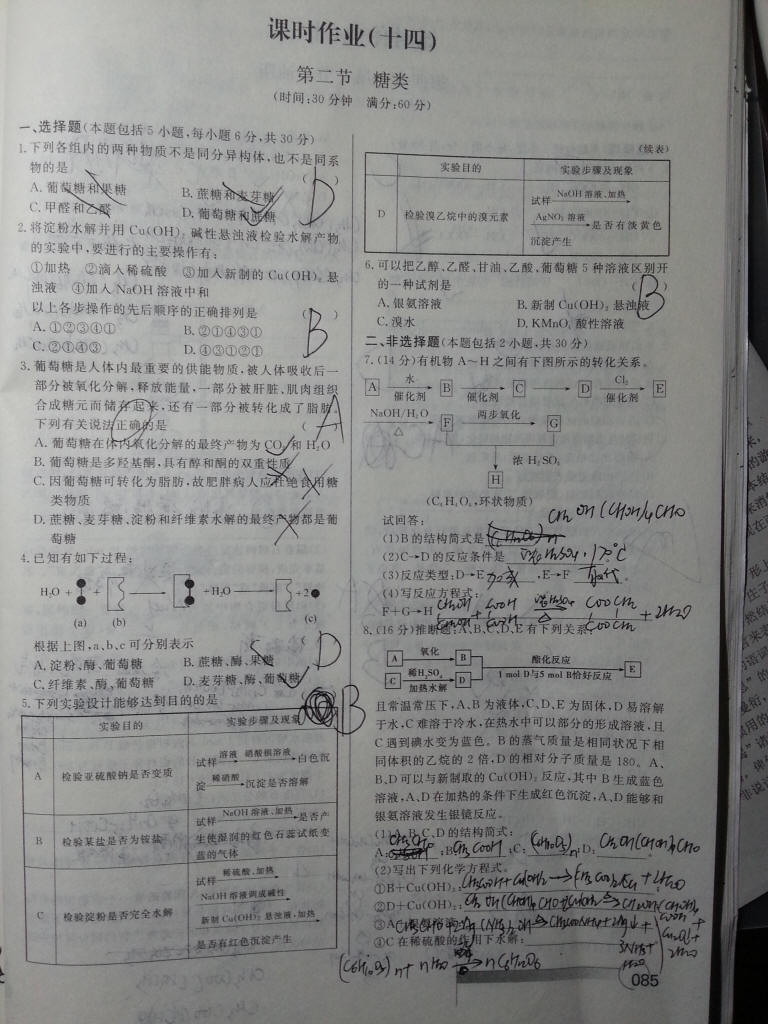 课时作业(十四)
第二节 糖类
(时间:30分钟 满分:60分)
一、选择题(本题包括5小题,每小题6分,共30分)
1.下列各组内的两种物质不是同分异构体,也不是同系
物的是 ( )
D
A.葡萄糖和果糖 B.蔗糖和麦芽糖
C.甲醛和乙醛 D.葡萄糖和蔗糖
2.将淀粉水解并用Cu(OH)₂碱性悬浊液检验水解产物
的实验中,要进行的主要操作有:
①加热 ②滴入稀硫酸 ③加入新制的Cu(OH)₂悬
浊液 ④加入NaOH溶液中和
以上各步操作的先后顺序的正确排列是 ( )
B
A.①②③④① B.②①④③①
C.②①④③ D.④③①②①
3.葡萄糖是人体内最重要的供能物质,被人体吸收后一
部分被氧化分解,释放能量,一部分被肝脏、肌肉组织
合成糖元而储存起来,还有一部分被转化成了脂肪。
下列有关说法正确的是 (
A
A.葡萄糖在体内氧化分解的最终产物为CO₂和H₂O
B.葡萄糖是多羟基酮,具有醇和酮的双重性质
C.因葡萄糖可转化为脂肪,故肥胖病人应杜绝食用糖
类物质
D.蔗糖、麦芽糖、淀粉和纤维素水解的最终产物都是葡
萄糖
4.已知有如下过程:
H₂O + + → +H₂O → +2
(a) (b) (c)
根据上图,a、b、c可分别表示 (
D
A.淀粉、酶、葡萄糖 B.蔗糖、酶、果糖
C.纤维素、酶、葡萄糖 D.麦芽糖、酶、葡萄糖
5.下列实验设计能够达到目的的是
B
实验目的 实验步骤及现象
A 检验亚硫酸钠是否变质 试样 溶液 硝酸钡溶液 白色沉
淀 稀硝酸 沉淀是否溶解
B 检验某盐是否为铵盐 试样 NaOH溶液、加热 是否产
生使湿润的红色石蕊试纸变
蓝的气体
C 检验淀粉是否完全水解 试样 稀硫酸、加热
NaOH溶液调成碱性
新制Cu(OH)₂悬浊液,加热
是否有红色沉淀产生
(续表)
实验目的 实验步骤及现象
D 检验溴乙烷中的溴元素 试样 NaOH溶液、加热
AgNO₃溶液 是否有淡黄色
沉淀产生
6.可以把乙醇、乙醛、甘油、乙酸、葡萄糖5种溶液区别开
的一种试剂是 ( )
B
A.银氨溶液 B.新制Cu(OH)₂悬浊液
C.溴水 D.KMnO₄酸性溶液
二、非选择题(本题包括2小题,共30分)
7.(14分)有机物A~H之间有下图所示的转化关系。
A 水 催化剂 B 催化剂 C D Cl₂ 催化剂 E
NaOH/H₂O △ F 两步氧化 G
浓H₂SO₄
H
(C₄H₄O₄,环状物质)
试回答:
CH₂OH(CHOH)₄CHO
(1)B的结构简式是
(2)C→D的反应条件是 浓H₂SO₄,170℃
(3)反应类型:D→E 加成 ,E→F 取代 。
(4)写反应方程式:
F+G→H
8.(16分)推断题:A、B、C、D、E有下列关系:
A 氧化 B
C 稀H₂SO₄ 加热水解 D
酯化反应 1 mol D与5 mol B恰好反应 E
且常温常压下,A、B为液体,C、D、E为固体,D易溶解
于水,C难溶于冷水,在热水中可以部分的形成溶液,且
C遇到碘水变为蓝色。B的蒸气质量是相同状况下相
同体积的乙烷的2倍,D的相对分子质量是180。A、
B、D可以与新制取的Cu(OH)₂反应,其中B生成蓝色
溶液,A、D在加热的条件下生成红色沉淀,A、D能够和
银氨溶液发生银镜反应。
(1)A、B、C、D的结构简式:
A: CH₃CHO ;B: CH₃COOH ;C: (C₆H₁₀O₅)n ;D: CH₂OH(CHOH)₄CHO
(2)写出下列化学方程式。
①B+Cu(OH)₂:
②D+Cu(OH)₂:
③A
④C在稀硫酸的作用下水解:
(C₆H₁₀O₅)n + nH₂O → nC₆H₁₂O₆
085